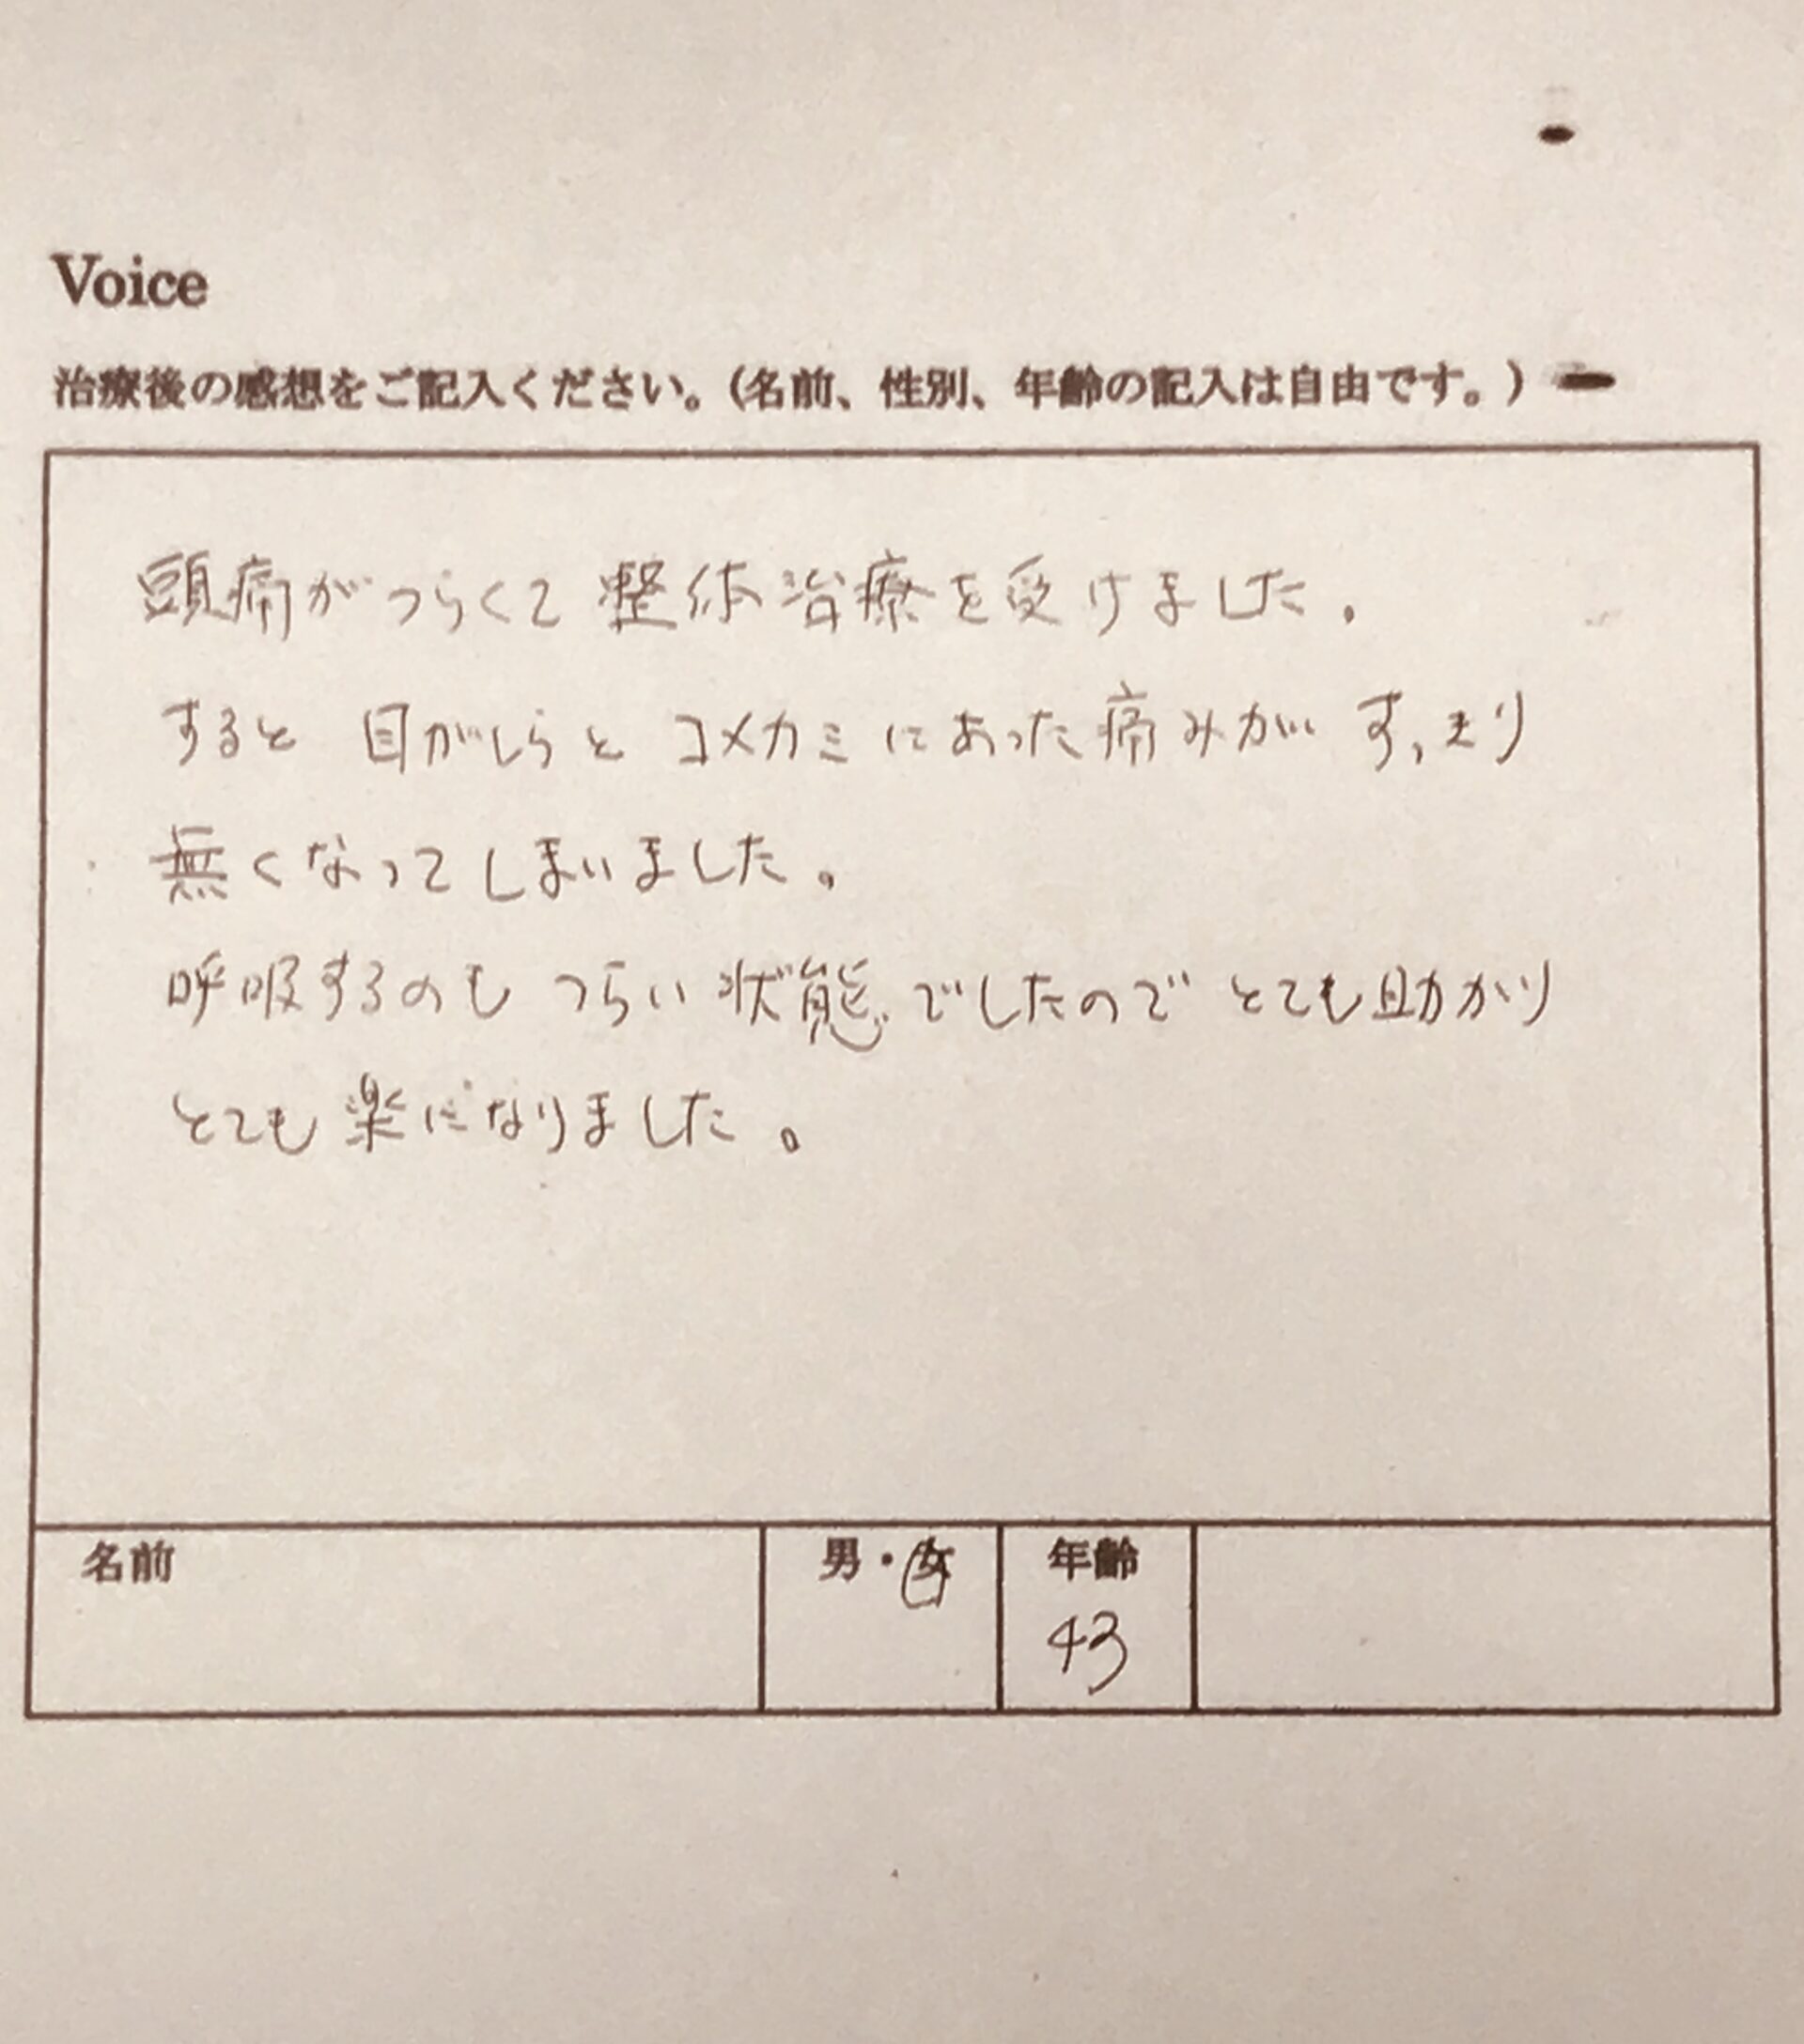 Voice
治療後の感想をご記入ください。(名前、性別、年齢の記入は自由です。)
頭痛がつらくて整体治療を受けました。
すると 目がしらと コメカミにあった痛みが すっきり
無くなってしまいました。
呼吸するのも つらい状態でしたので とても助かり
とても楽になりました。
名前 男・女 年齢
43